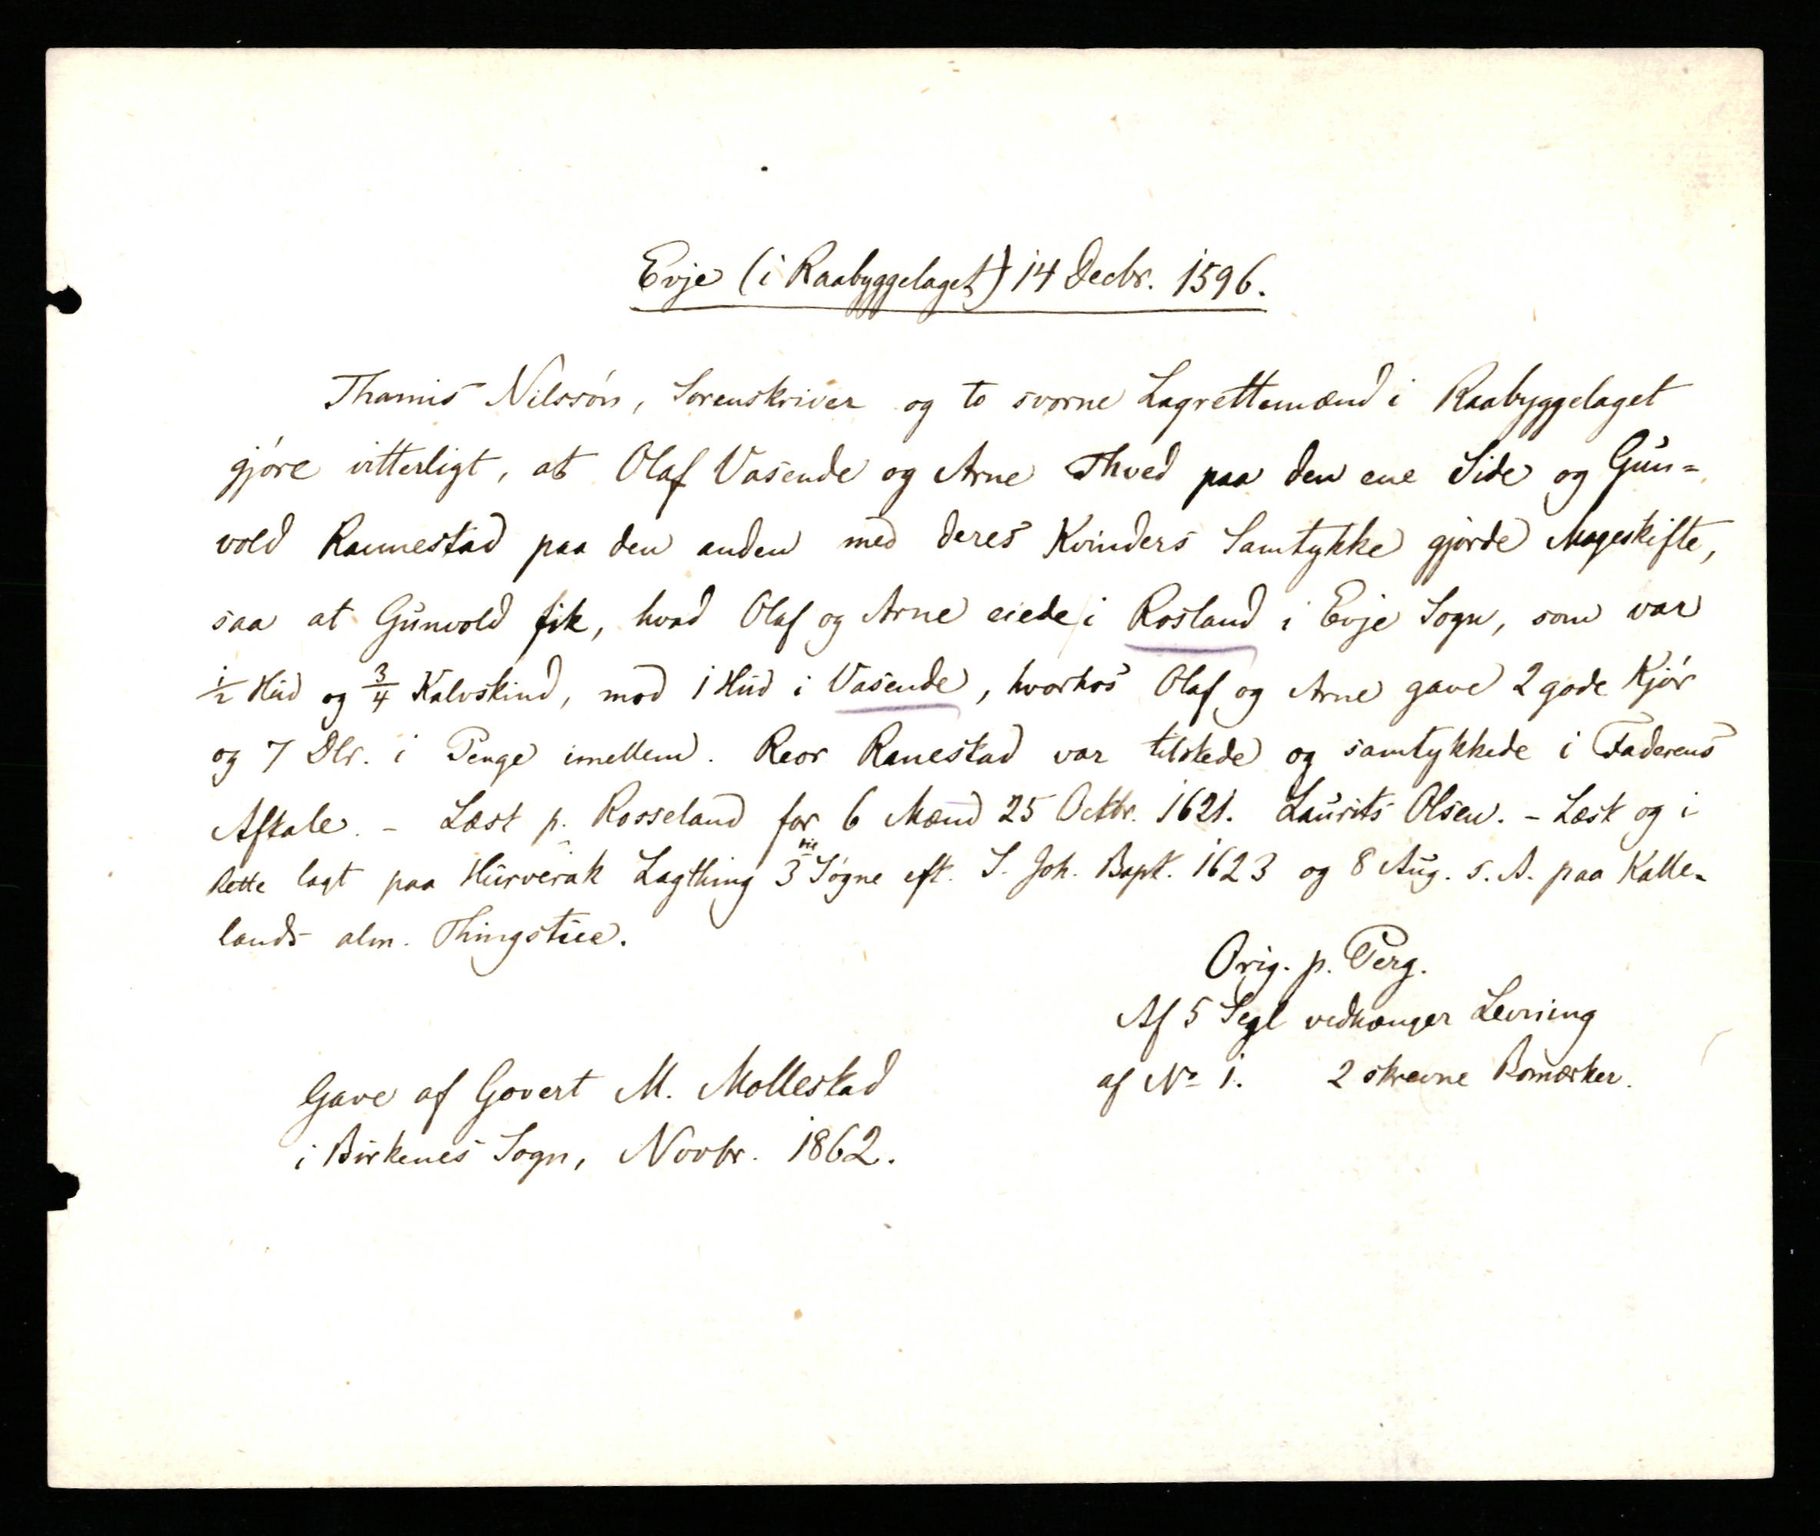 Evje (i Raabyggelaget) 14 Decbr. 1596.
Thamis Nilssøn, Sorenskriver og to svorne Lagrettemænd i Raabyggelaget
gjøre vitterligt, at Olaf Vasende og Arne Thved paa den ene Side og Gun=
vold Rannestad paa den anden med deres Kvinders Samtykke gjorde Mageskifte,
saa at Gunvold fik, hvad Olaf og Arne eiede i Rosland i Evje Sogn, som var
1/2 Hud og 3/4 Kalvskind, mod 1 Hud i Vasende, hvorhos Olaf og Arne gave 2 gode Kjør
og 7 Dlr. i Penge imellem. Reor Ranestad var tilstede og samtykkede i Faderens
Aftale. - Læst p. Rosseland for 6 Mænd 25 Octbr. 1621. Laurits Olsen. - Læst og i
Rette lagt paa Hurverak Lagthing 3 Søgne eft. S. Joh. Bapt. 1623 og 8 Aug. s. A. paa Kalle=
lands alm. Thingstue.
Orig. p. Perg.
Af 5 Segl vedhænger Levning
af No 1. 2 skrevne Bomærker.
Gave af Govert M. Mollestad
i Birkenes Sogn, Novbr. 1862.